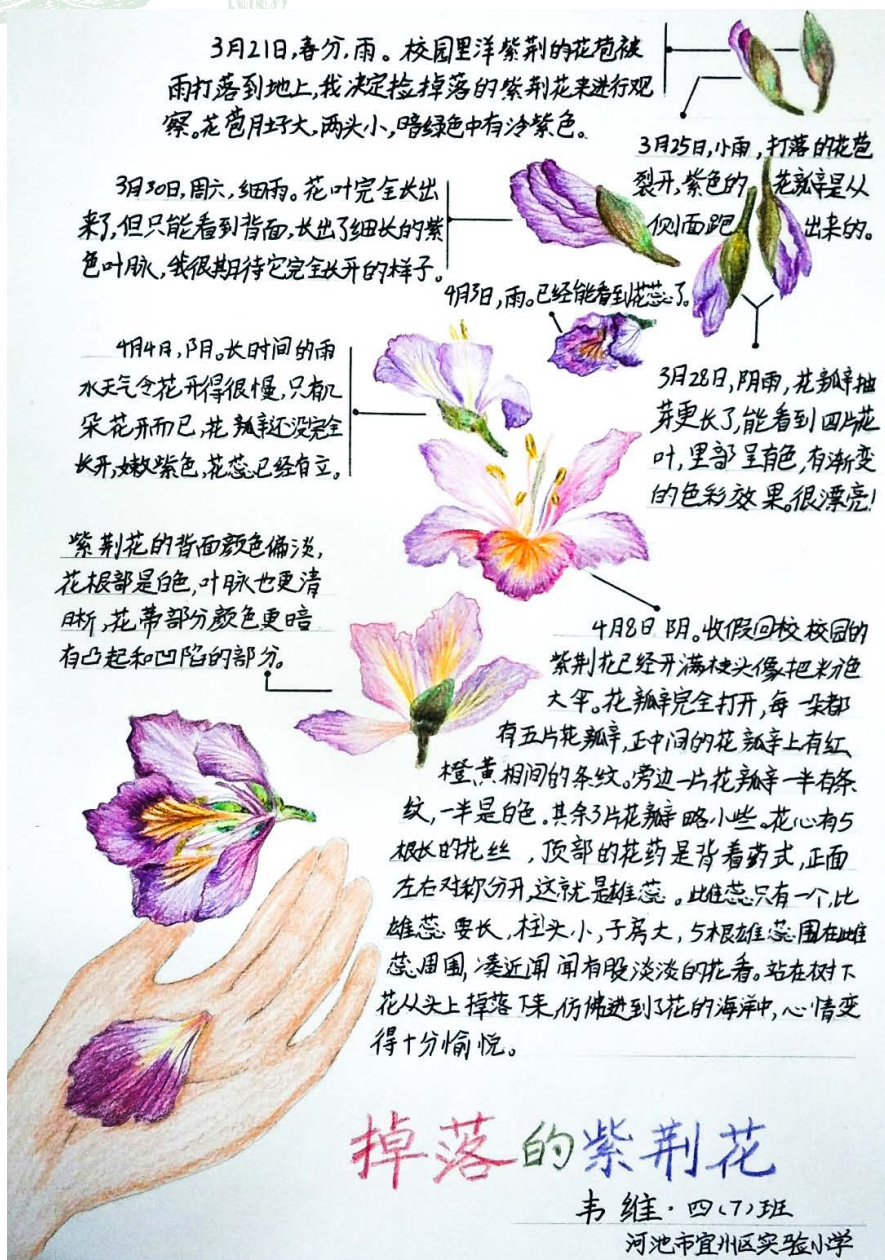 3月21日,春分,雨。校园里洋紫荆的花苞被
雨打落到地上,我决定捡掉落的紫荆花来进行观
察。花苞月土子大,两头小,暗绿色中有冷紫色。
3月25日,小雨,打落的花苞
裂开,紫色的花瓣是从
侧面跑出来的。
3月30日,周六,细雨。花叶完全长出
来了,但只能看到背面,长出了细长的紫
色叶脉,我很期待它完全长开的样子。
4月3日,雨。已经能看到花蕊了。
3月28日,阴雨,花瓣抽
芽更长了,能看到四片花
叶,里部呈有色,有渐变
的色彩效果。很漂亮!
4月4日,阴。长时间的雨
水天气令花开得很慢,只有几
朵花开而已,花瓣还没完全
长开,嫩紫色,花蕊已经自立。
紫荆花的背面颜色偏淡,
花根部是白色,叶脉也更清
晰,花蒂部分颜色更暗
有凸起和凹陷的部分。
4月8日 阴。收假回校校园的
紫荆花已经开满枝头像把粉色
大伞。花瓣完全打开,每一朵都
有五片花瓣,正中间的花瓣上有红、
橙、黄相间的条纹。旁边一片花瓣一半有条
纹,一半是白色。其余3片花瓣略小些。花心有5
根长的花丝,顶部的花药是背着药式,正面
左右对称分开,这就是雄蕊。雌蕊只有一个,比
雄蕊要长,柱头小,子房大,5根雄蕊围在雌
蕊周围,凑近闻闻有股淡淡的花香。站在树下
花从头上掉落下来,仿佛进到了花的海洋中,心情变
得十分愉悦。
掉落的紫荆花
韦维·四(7)班
河池市宜州区实验小学